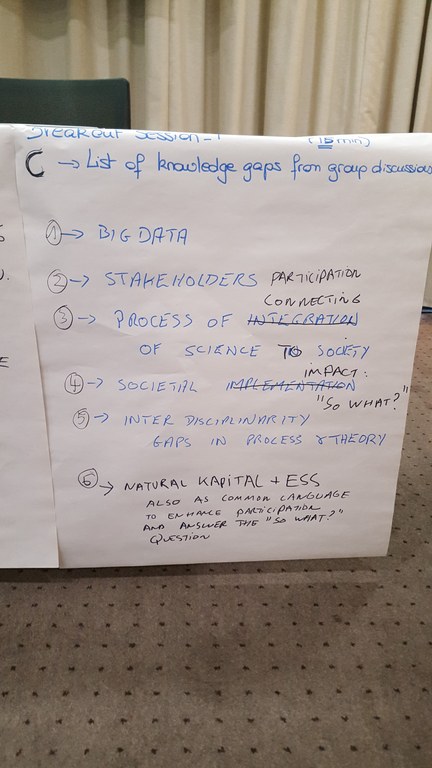 BREAKOUT SESSION-1 (15 min)
C → List of knowledge gaps from group discussions
① → BIG DATA
② → STAKEHOLDERS PARTICIPATION
CONNECTING
③ → PROCESS OF INTEGRATION
OF SCIENCE TO SOCIETY
IMPACT:
④ → SOCIETAL IMPLEMENTATION
"SO WHAT?"
⑤ → INTER DISCIPLINARITY
GAPS IN PROCESS & THEORY
⑥ → NATURAL KAPITAL + ESS
ALSO AS COMMON LANGUAGE
TO ENHANCE PARTICIPATION
AND ANSWER THE "SO WHAT?"
QUESTION